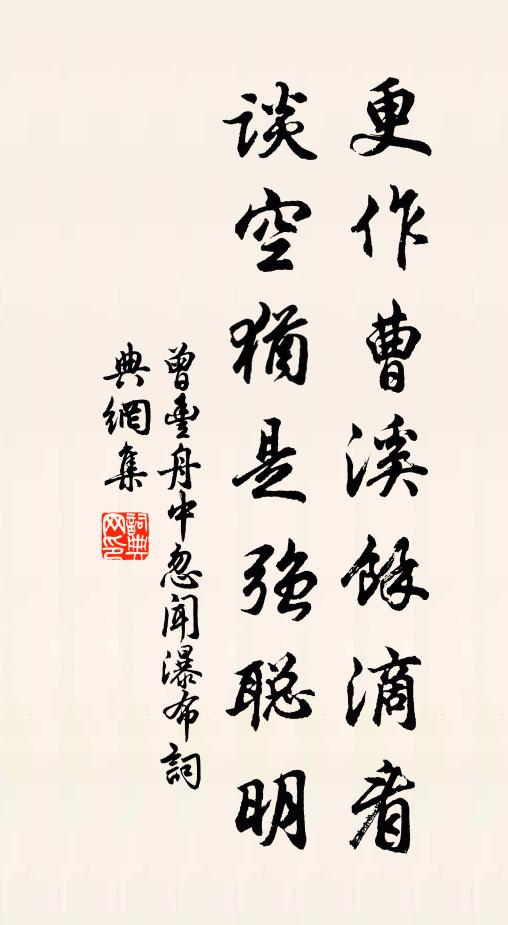 更作曹溪餘滴看
谈空猶是強聪明
曾豐舟中忽闻瀑布詞
典網集
詞典网印